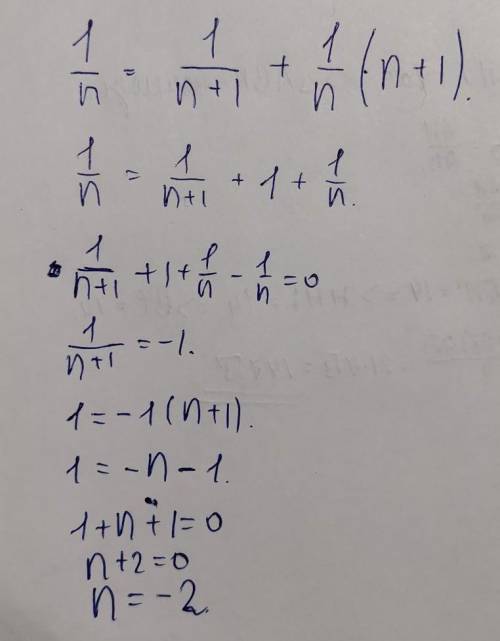 1/n = 1/(n+1) + 1/n (n+1).
1/n = 1/(n+1) + 1 + 1/n.
1/(n+1) + 1 + 1/n - 1/n = 0
1/(n+1) = -1.
1 = -1(n+1).
1 = -n - 1.
1+n+1=0
n+2=0
n = -2.